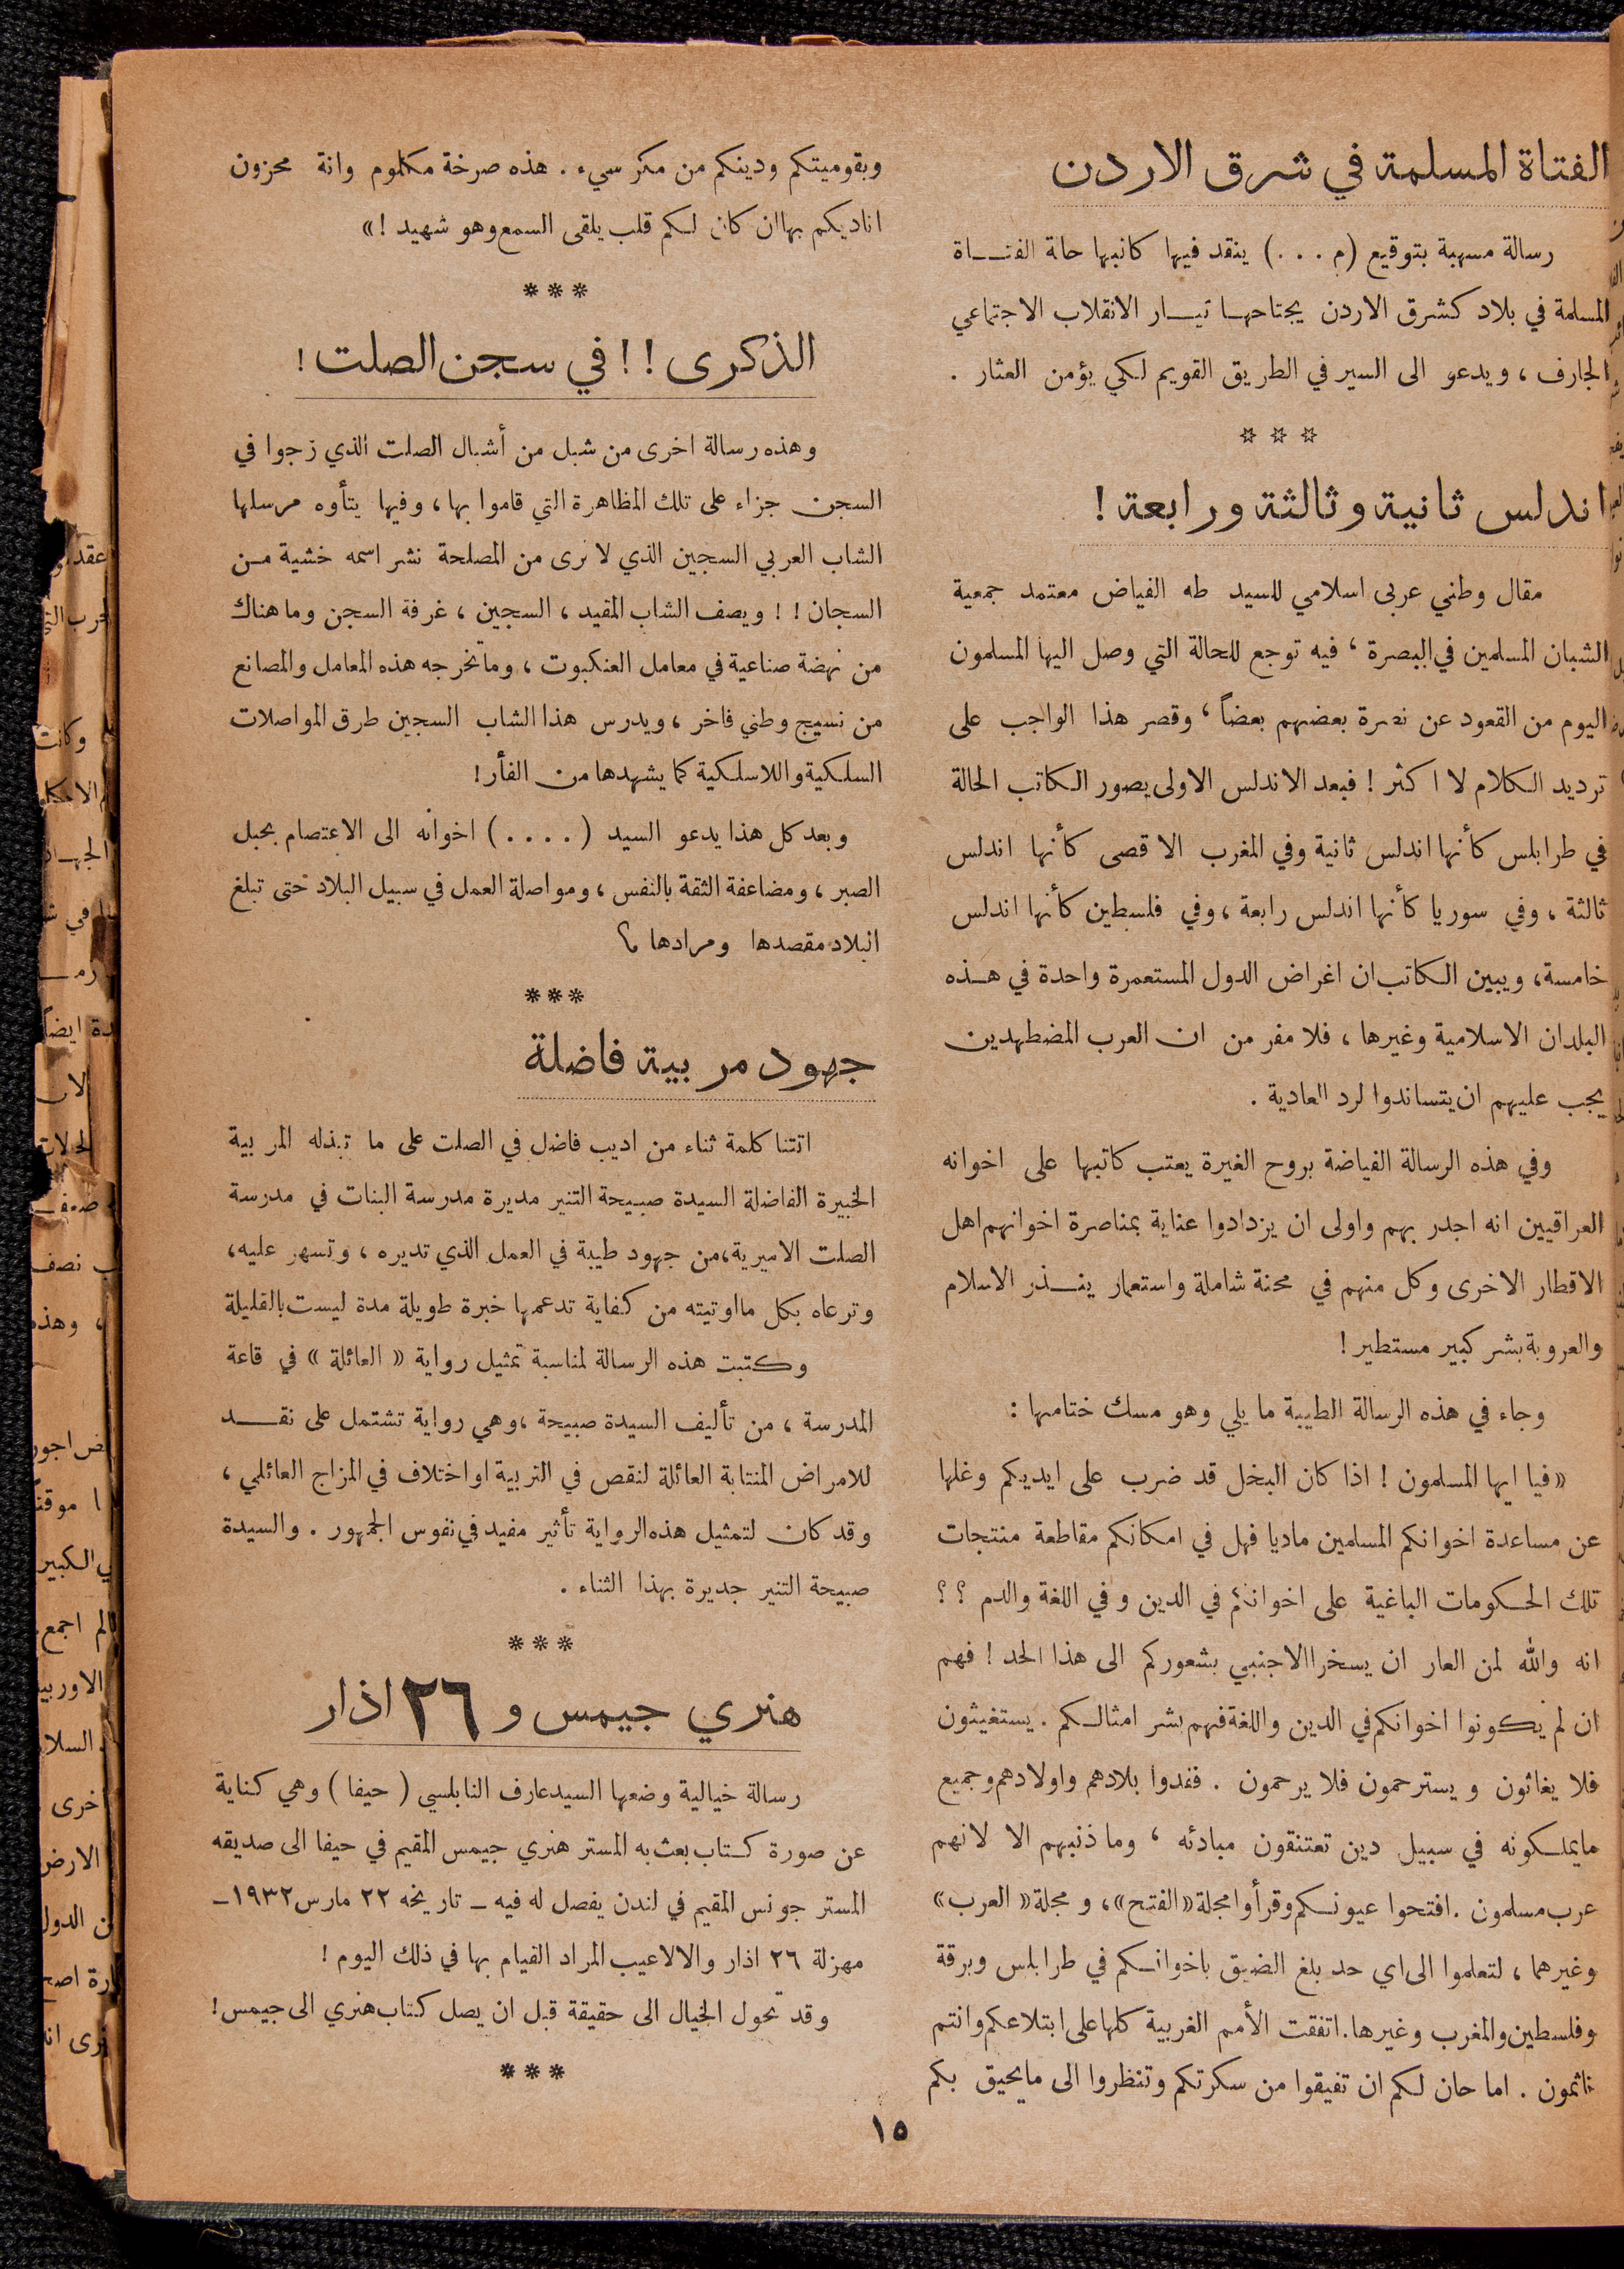 الفتاة المسلمة في شرق الاردن
رسالة مسهبة بتوقيع (م . . .) ينقد فيها كاتبها حالة الفتــاة
المسلمة في بلاد كشرق الاردن يجتاحهـا تيــار الانقلاب الاجتماعي
الجارف ، ويدعو الى السير في الطريق القويم لكي يؤمن العثار .
☆ ☆ ☆
اندلس ثانية وثالثة ورابعة !
مقال وطني عربى اسلامي للسيد طه الفياض معتمد جمعية
الشبان المسلمين في البصرة ، فيه توجع للحالة التي وصل اليها المسلمون
اليوم من القعود عن نصرة بعضهم بعضاً ، وقصر هذا الواجب على
ترديد الكلام لا اكثر ! فبعد الاندلس الاولى يصور الكاتب الحالة
في طرابلس كأنها اندلس ثانية وفي المغرب الاقصى كأنها اندلس
ثالثة ، وفي سوريا كأنها اندلس رابعة ، وفي فلسطين كأنها اندلس
خامسة، ويبين الكاتب ان اغراض الدول المستعمرة واحدة في هـذه
البلدان الاسلامية وغيرها ، فلا مفر من ان العرب المضطهدين
يجب عليهم ان يتساندوا لرد العادية .
وفي هذه الرسالة الفياضة بروح الغيرة يعتب كاتبها على اخوانه
العراقيين انه اجدر بهم واولى ان يزدادوا عناية بمناصرة اخوانهم اهل
الاقطار الاخرى وكل منهم في محنة شاملة واستعمار ينـذر الاسلام
والعروبة بشر كبير مستطير !
وجاء في هذه الرسالة الطيبة ما يلي وهو مسك ختامها :
«فيا ايها المسلمون ! اذا كان البخل قد ضرب على ايديكم وغلها
عن مساعدة اخوانكم المسلمين ماديا فهل في امكانكم مقاطعة منتجات
تلك الحكومات الباغية على اخوانكم في الدين وفي اللغة والدم ؟ ؟
انه والله لمن العار ان يسخر الاجنبي بشعوركم الى هذا الحد ! فهم
ان لم يكونوا اخوانكم في الدين واللغة فهم بشر امثالكم . يستغيثون
فلا يغاثون ويسترحمون فلا يرحمون . ففدوا بلادهم واولادهم وجميع
مايملكونه في سبيل دين تعتنقون مبادئه ، وما ذنبهم الا لانهم
عرب مسلمون . افتحوا عيونكم وقرأوا مجلة «الفتح» ، و مجلة «العرب»
وغيرهما ، لتعلموا الى اي حد بلغ الضيق باخوانكم في طرابلس وبرقة
وفلسطين والمغرب وغيرها . اتفقت الأمم الغربية كلها على ابتلاعكم وانتم
نائمون . اما حان لكم ان تفيقوا من سكرتكم وتنظروا الى مايحيق بكم
وبقوميتكم ودينكم من مكر سيء . هذه صرخة مكلوم وانة محزون
اناديكم بها ان كان لكم قلب يلقى السمع وهو شهيد !»
***
الذكرى !! في سجن الصلت !
وهذه رسالة اخرى من شبل من أشبال الصلت الذي زجوا في
السجن جزاء على تلك المظاهرة التي قاموا بها ، وفيها يتأوه مرسلها
الشاب العربي السجين الذي لا نرى من المصلحة نشر اسمه خشية مـن
السجان ! ! ويصف الشاب المقيد ، السجين ، غرفة السجن وما هناك
من نهضة صناعية في معامل العنكبوت ، وما تخرجه هذه المعامل والمصانع
من نسيج وطني فاخر ، ويدرس هذا الشاب السجين طرق المواصلات
السلكية واللاسلكية كما يشهدها من الفأر !
وبعد كل هذا يدعو السيد ( . . . . ) اخوانه الى الاعتصام بحبل
الصبر ، ومضاعفة الثقة بالنفس ، ومواصلة العمل في سبيل البلاد حتى تبلغ
البلاد مقصدها ومرادها ؟
***
جهود مربية فاضلة
اتتنا كلمة ثناء من اديب فاضل في الصلت على ما تبذله المربية
الخبيرة الفاضلة السيدة صبيحة التنير مديرة مدرسة البنات في مدرسة
الصلت الاميرية، من جهود طيبة في العمل الذي تديره ، وتسهر عليه،
وترعاه بكل مااوتيته من كفاية تدعمها خبرة طويلة مدة ليست بالقليلة
وكتبت هذه الرسالة لمناسبة تمثيل رواية « العائلة » في قاعة
المدرسة ، من تأليف السيدة صبيحة ، وهي رواية تشتمل على نقـد
للامراض المنتابة العائلة لنقص في التربية او اختلاف في المزاج العائلي ،
وقد كان لتمثيل هذه الرواية تأثير مفيد في نفوس الجمهور . والسيدة
صبيحة التنير جديرة بهذا الثناء .
***
هنري جيمس و ٢٦ اذار
رسالة خيالية وضعها السيد عارف النابلسي ( حيفا ) وهي كناية
عن صورة كتاب بعث به المستر هنري جيمس المقيم في حيفا الى صديقه
المستر جونس المقيم في لندن يفصل له فيه – تاريخه ٢٢ مارس ١٩٣٢–
مهزلة ٢٦ اذار والالاعيب المراد القيام بها في ذلك اليوم !
وقد تحول الخيال الى حقيقة قبل ان يصل كتاب هنري الى جيمس !
***
١٥